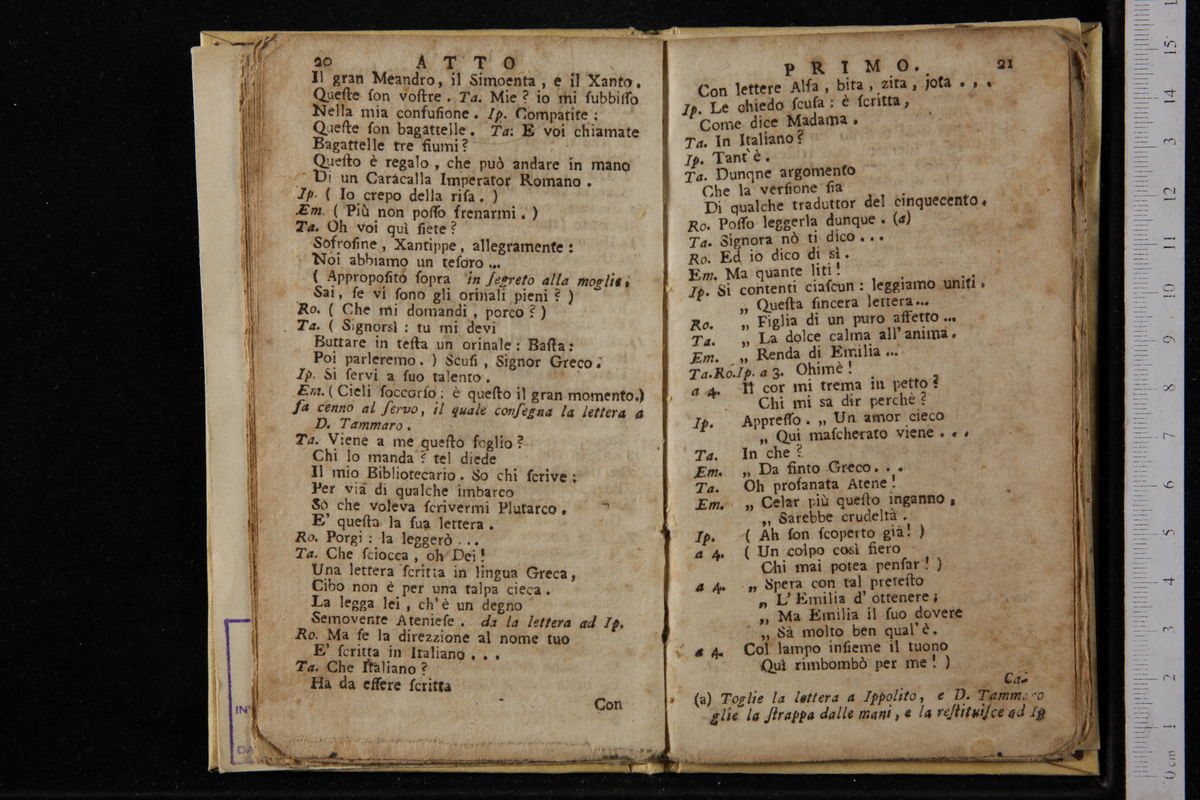 20 ATTO
Il gran Meandro, il Simoenta, e il Xanto.
Queſte ſon voſtre. Ta. Mie? io mi ſubbiſſo
Nella mia confuſione. Ip. Compatite:
Queſte ſon bagattelle. Ta: E voi chiamate
Bagattelle tre fiumi?
Queſto è regalo, che può andare in mano
Di un Caracalla Imperator Romano.
Ip. ( Io crepo della riſa. )
Em. ( Più non poſſo frenarmi. )
Ta. Oh voi quì ſiete?
Sofroſine, Xantippe, allegramente:
Noi abbiamo un teſoro...
( Appropoſito ſopra in ſegreto alla moglie;
Sai, ſe vi ſono gli orinali pieni? )
Ro. ( Che mi domandi, porco? )
Ta. ( Signorsì: tu mi devi
Buttare in teſta un orinale: Baſta:
Poi parleremo. ) Scuſi, Signor Greco.
Ip. Si ſervi a ſuo talento.
Em. ( Cieli ſoccorſo: è queſto il gran momento.)
fa cenno al ſervo, il quale conſegna la lettera a
D. Tammaro.
Ta. Viene a me queſto foglio?
Chi lo manda? tel diede
Il mio Bibliotecario. So chi ſcrive:
Per via di qualche imbarco
Sò che voleva ſcrivermi Plutarco.
E' queſta la ſua lettera.
Ro. Porgi: la leggerò...
Ta. Che ſciocca, oh Dei!
Una lettera ſcritta in lingua Greca,
Cibo non è per una talpa cieca.
La legga lei, ch'è un degno
Semovente Atenieſe. da la lettera ad Ip.
Ro. Ma ſe la direzzione al nome tuo
E' ſcritta in Italiano...
Ta. Che Italiano?
Ha da eſſere ſcritta
Con
PRIMO. 21
Con lettere Alfa, bita, zita, jota...
Ip. Le chiedo ſcuſa: è ſcritta,
Come dice Madama.
Ta. In Italiano?
Ip. Tant'è.
Ta. Dunqne argomento
Che la verſione ſia
Di qualche traduttor del cinquecento.
Ro. Poſſo leggerla dunque. (a)
Ta. Signora nò ti dico...
Ro. Ed io dico di sì.
Em. Ma quante liti!
Ip. Si contenti ciaſcun: leggiamo uniti.
„ Queſta ſincera lettera...
Ro. „ Figlia di un puro affetto...
Ta. „ La dolce calma all'anima.
Em. „ Renda di Emilia...
Ta.Ro.Ip. a 3. Ohimè!
a 4. Il cor mi trema in petto?
Chi mi sa dir perchè?
Ip. Appreſſo. „ Un amor cieco
„ Qui maſcherato viene...
Ta. In che?
Em. „ Da finto Greco...
Ta. Oh profanata Atene!
Em. „ Celar più queſto inganno,
„ Sarebbe crudeltà.
Ip. ( Ah ſon ſcoperto già! )
a 4. ( Un colpo così fiero
Chi mai potea penſar! )
a 4. „ Spera con tal preteſto
„ L'Emilia d' ottenere;
„ Ma Emilia il ſuo dovere
„ Sà molto ben qual'è.
a 4. Col lampo inſieme il tuono
Quì rimbombò per me! )
Ca-
(a) Toglie la lettera a Ippolito, e D. Tammaro
glie la ſtrappa dalle mani, e la reſtituiſce ad Ip